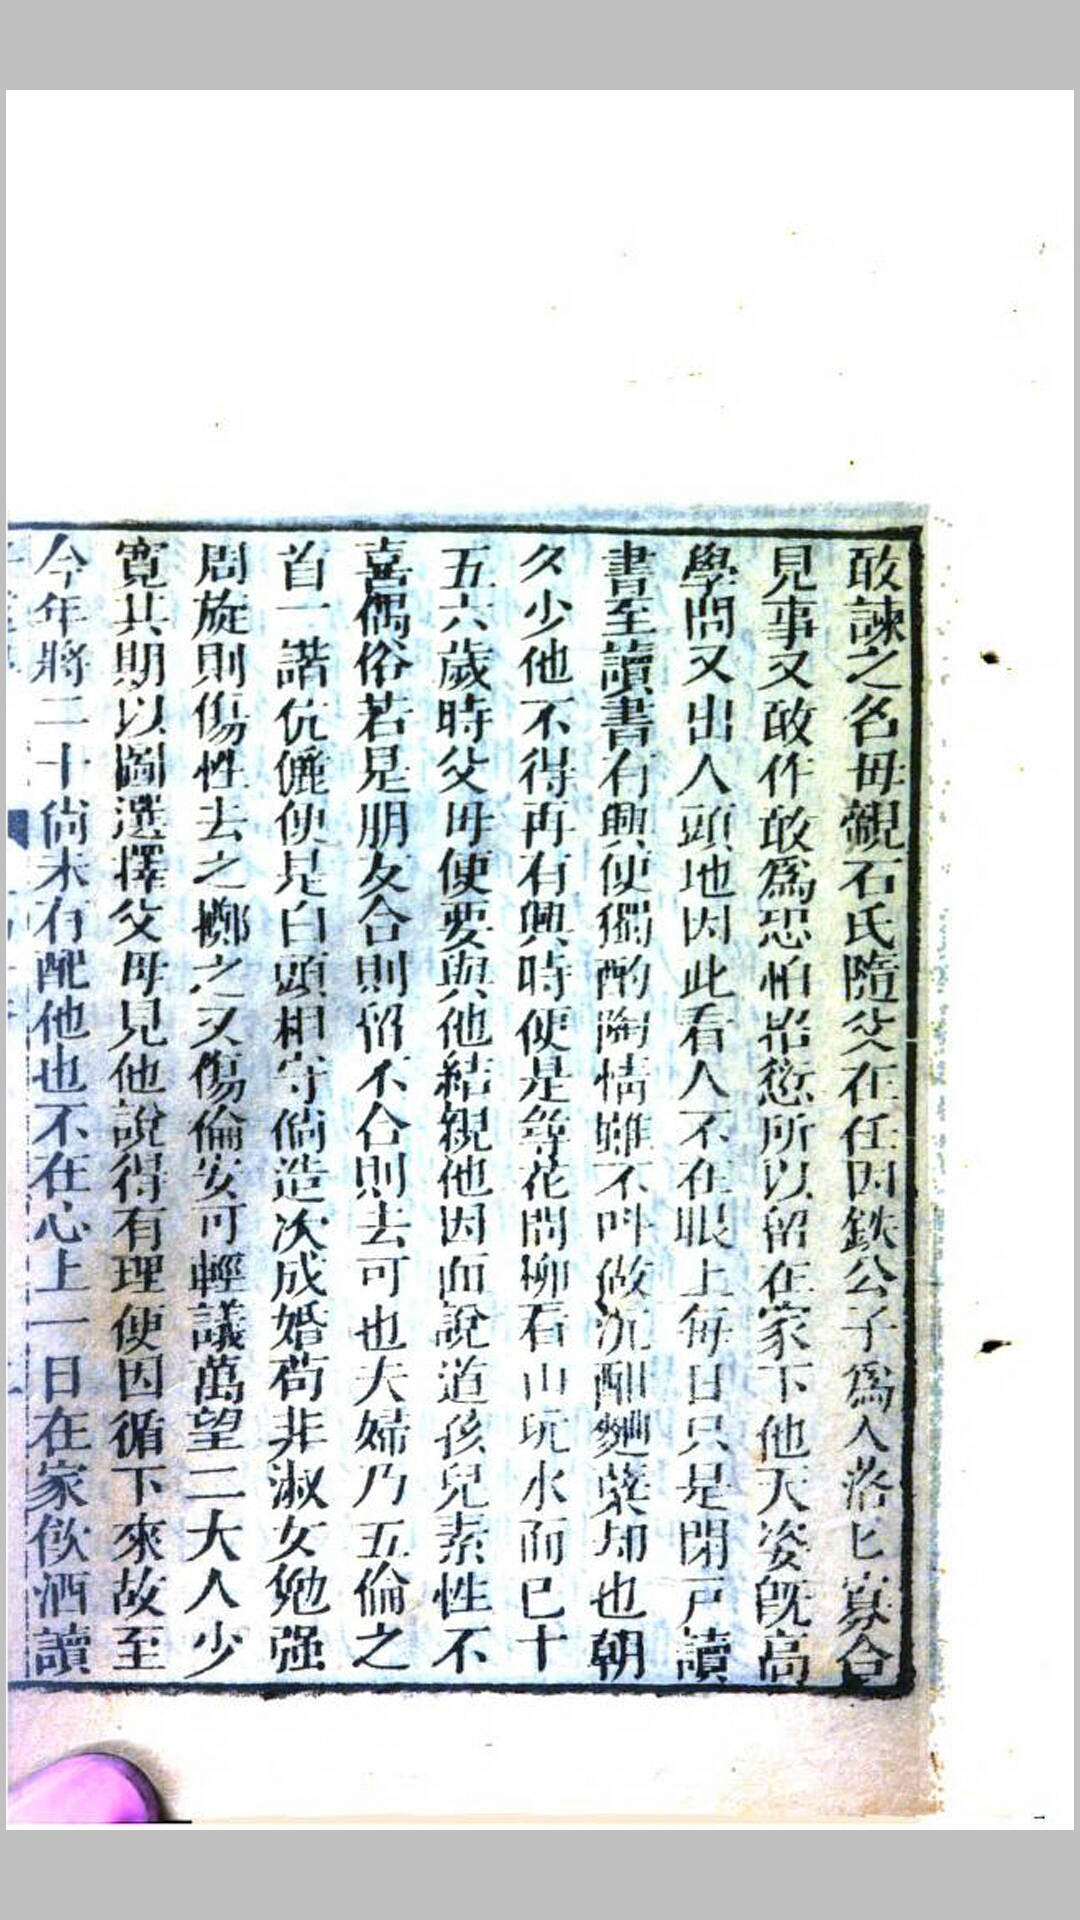 敢諫之名母親石氏隨父在任因鉄公子為人落匕寡合
見事又敢作敢為恐怕招愆所以留在家下他天姿旣高
學問又出人頭地因此看人不在眼上每日只是閉戸讀
書至讀書有興便獨酌陶情雖不呌做沉酣麯蘖却也朝
夕少他不得再有興時便是尋花問柳看山玩水而已十
五六歲時父母便要與他結親他因而說道孩兒素性不
喜偶俗若是朋友合則留不合則去可也夫婦乃五倫之
首一諧伉儷便是白頭相守倘造次成婚苟非淑女勉强
周旋則傷性去之擲之又傷倫安可輕議萬望二大人少
寬其期以圖選擇父母見他說得有理便因循下來故至
今年將二十尙未有配他也不在心上一日在家飲酒讀